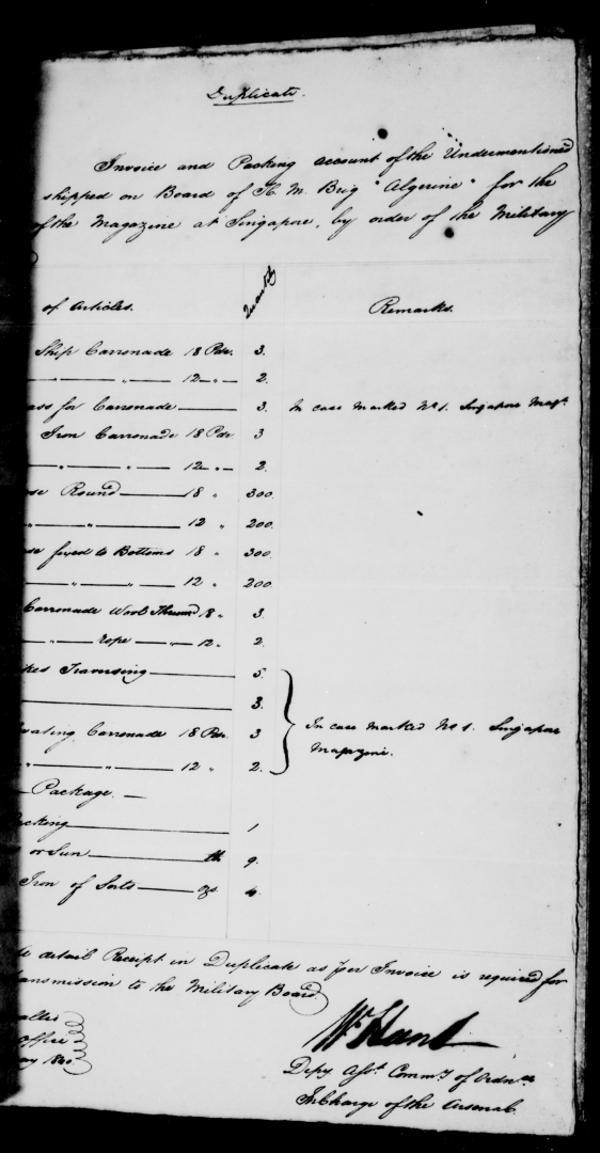 Duplicate.
Invoice and Packing account of the Undermentioned
shipped on Board of H. M. Brig "Algerine" for the
of the Magazine at Singapore, by order of the Military
of Articles. Quantity Remarks.
Ship Carronade 18 Pdr. 3.
— " — 12 — " — 2.
ass for Carronade — 3. In case marked No 1. Singapore Magn.
Iron Carronade 18 Pdr 3
— " — " — 12 — " — 2.
se Round — 18 " 300.
" — " — 12 " 200.
se fixed to Bottoms 18 " 300.
— " — " — 12 " 200
Carronade Wool 18 " 3.
" — rope — " — 12 " 2.
kes Traversing — 5.
— 3.
vating Carronade 18 Pdr. 3 In case marked No 1. Singapore
" — " — 12 " 2. Magazine.
— Package. —
acking — 1
or Sun — lb 9.
Iron of Sorts — 4.
detail Receipt in Duplicate as per Invoice is required for
ansmission to the Military Board.
W Hand
Depy Asst. Commy of Ordnce
In Charge of the Arsenal.
office
ay 1840